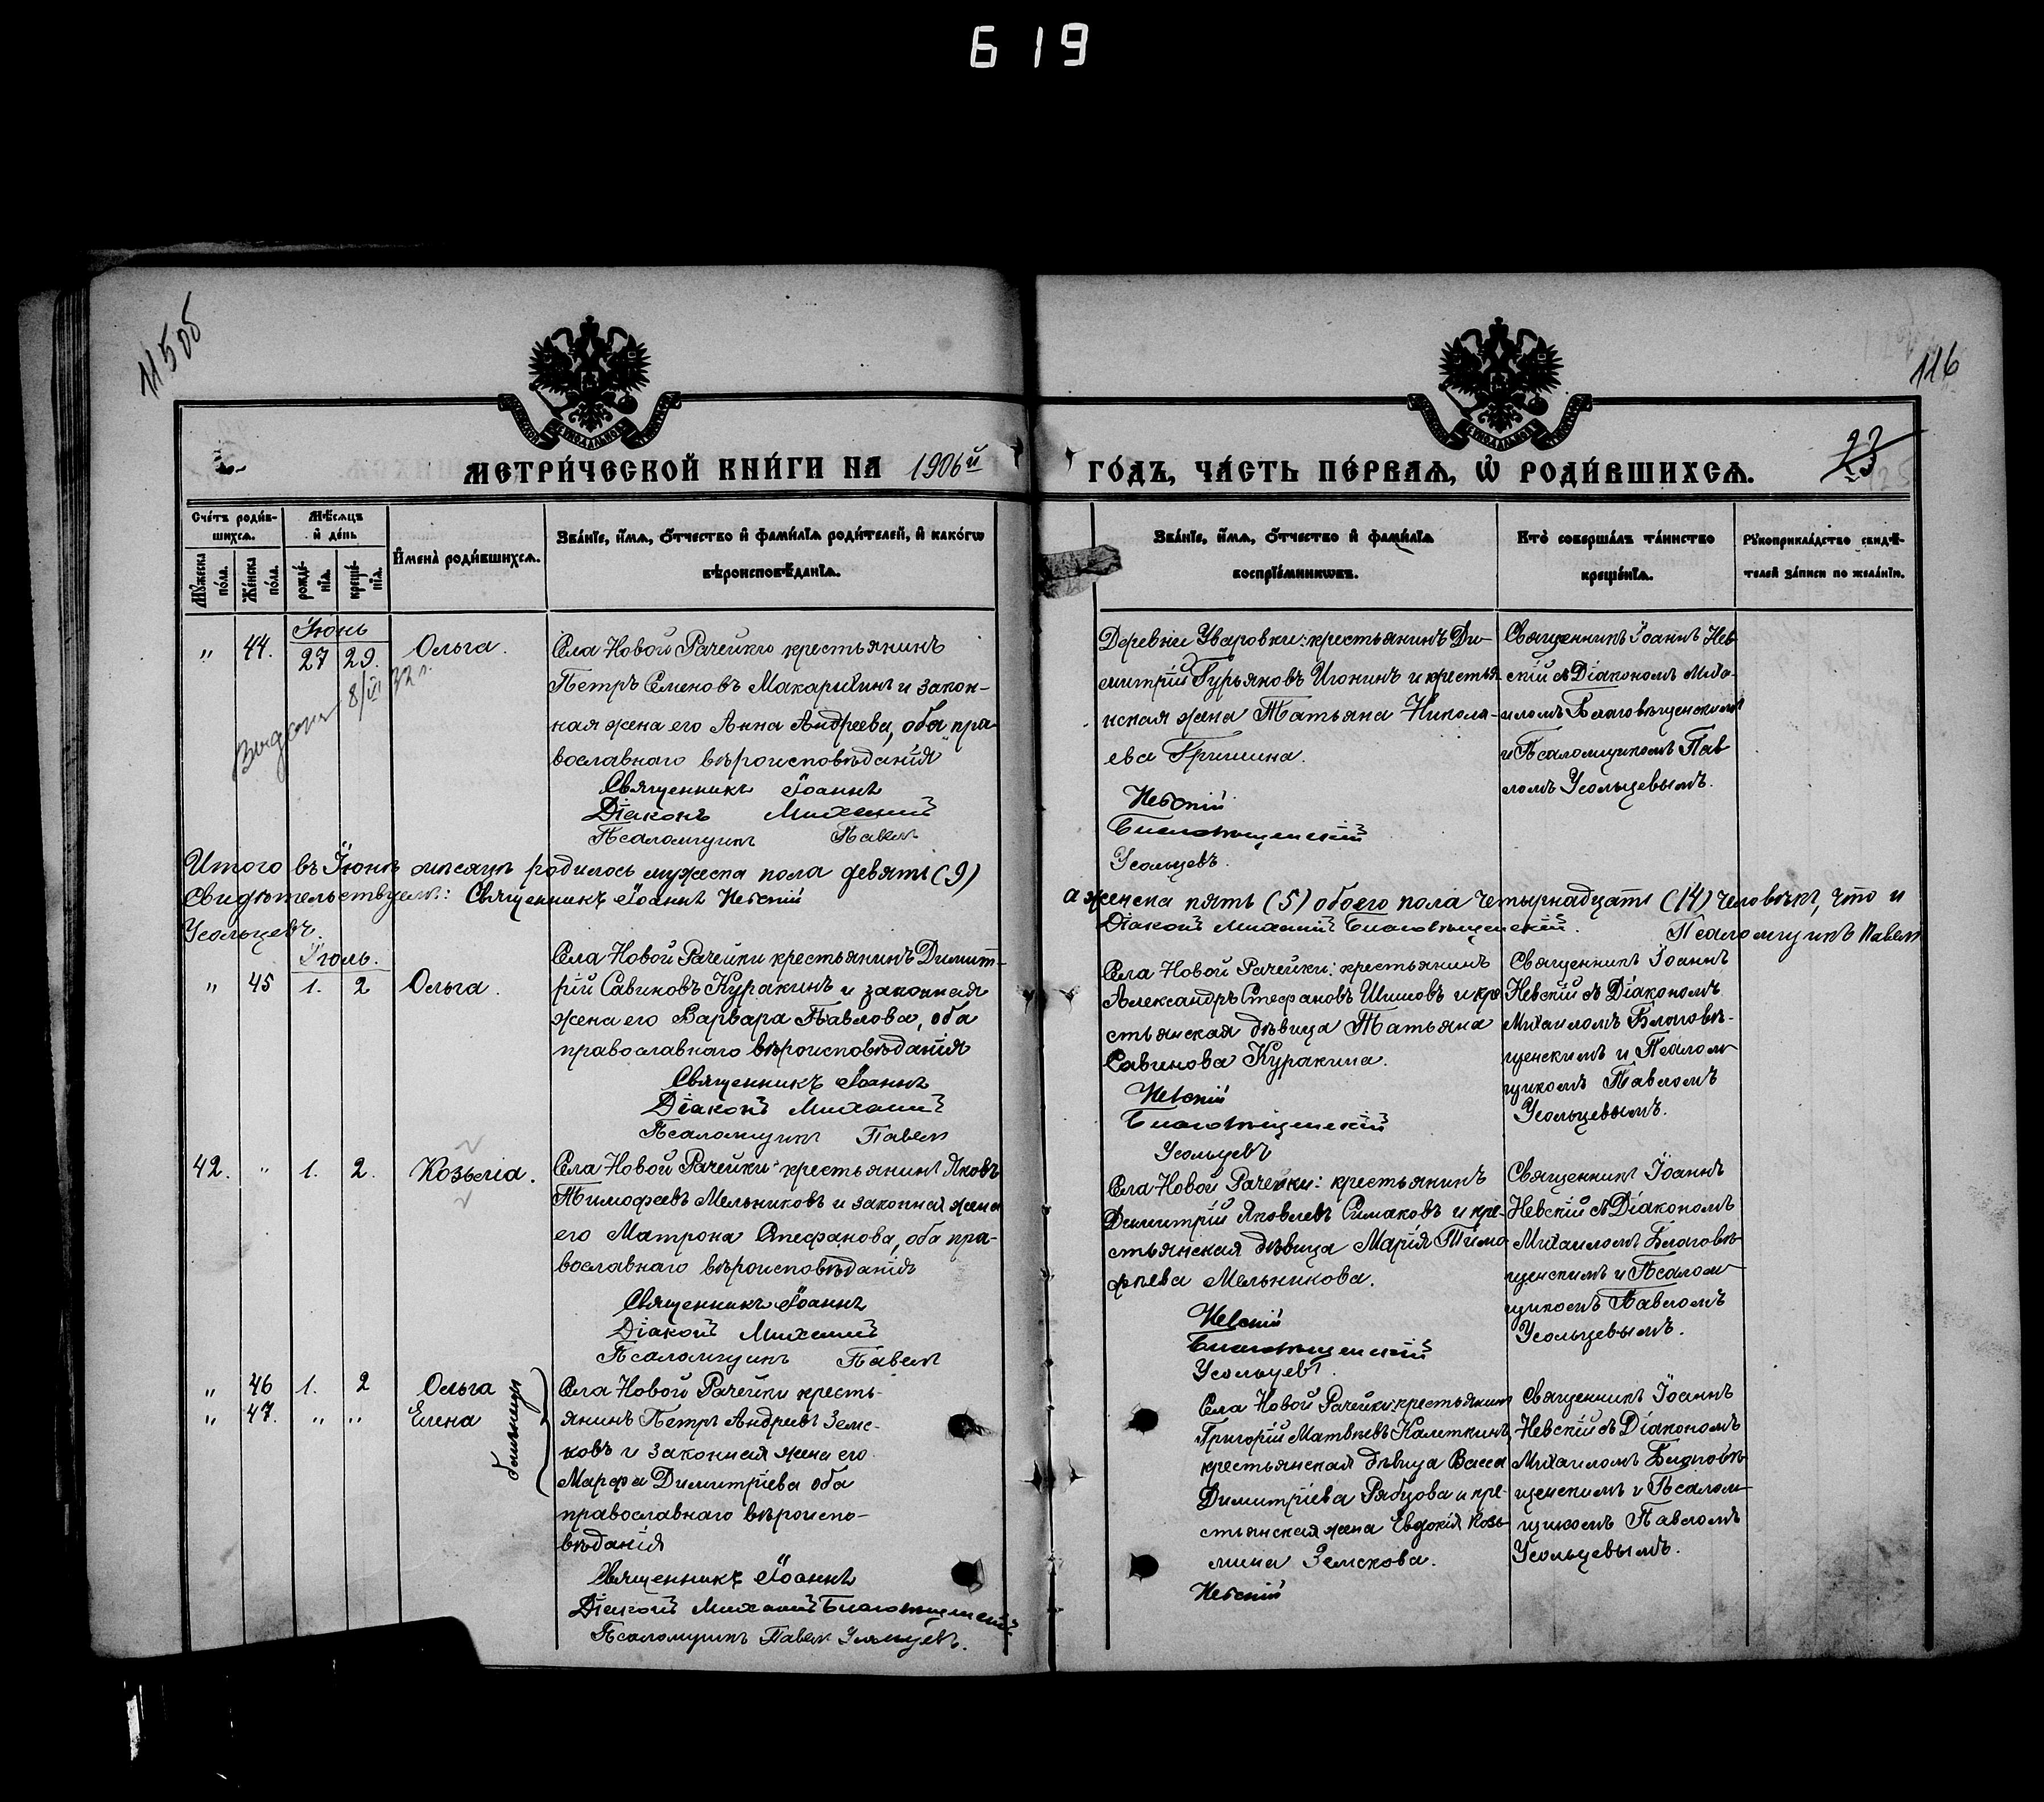 619
115об
116
МЕТРИ́ЧЕСКОЙ КНИ́ГИ НА 1906й
ГО́ДЪ, ЧА́СТЬ ПЕ́РВАѦ, Ѡ҆ РОДИ́ВШИХСѦ.
23
Сче́тъ роди́в-
шихсѧ.
Мѣ́сѧцъ
и҆ де́нь
Мꙋ́жеска
по́ла.
Же́нска
по́ла.
рожде́-
нїѧ.
креще́-
нїѧ.
И҆мена̀ роди́вшихсѧ.
Зва́нїе, и҆́мѧ, ѻ҆́тчество и҆ фами́лїѧ роди́телей, и҆ како́гѡ
вѣроисповѣ́данїѧ.
Зва́нїе, и҆́мѧ, ѻ҆́тчество и҆ фами́лїѧ
воспрїе́мникѡвъ.
Кто̀ соверша́лъ та́инство
креще́нїѧ.
Рꙋкоприкла́дство свидѣ́-
телей за́писи по жела́нїю.
Іюнь
" 44. 27 29. Ольга.
8/III 32 г.
Села Новой Рачейки крестьянинъ
Петръ Семеновъ Макарихинъ и закон-
ная жена его Анна Андреева, оба пра-
вославнаго вѣроисповѣданія
Священникъ Іоаннъ
Діаконъ Михаилъ
Псаломщикъ Павелъ
Деревни Уваровки: крестьянинъ Ди-
митрій Гурьяновъ Игонинъ и крестья-
нская жена Татьяна Никола-
ева Гришина.
Невскій
Благовѣщенскій
Усольцевъ.
Священникъ Іоаннъ Нев-
скій съ Діакономъ Миха-
иломъ Благовѣщенскимъ
и Псаломщикомъ Пав
ломъ Усольцевымъ.
Итого въ Іюнѣ мѣсяцѣ родилось мужеска пола девять (9)
а женска пять (5) обоего пола четырнадцать (14) человѣкъ, что и
свидѣтельствуемъ: Священникъ Іоаннъ Невскій
Діаконъ Михаилъ Благовѣщенскій. Псаломщикъ Павелъ
Усольцевъ.
Іюль.
" 45 1. 2 Ольга.
Села Новой Рачейки крестьянинъ Димит-
рій Савиновъ Куракинъ и законная
жена его Варвара Павлова, оба
православнаго вѣроисповѣданія
Священникъ Іоаннъ
Діаконъ Михаилъ
Псаломщикъ Павелъ
Села Новой Рачейки: крестьянинъ
Александръ Стефановъ Шишовъ и кре-
стьянская дѣвица Татьяна
Савинова Куракина.
Невскій
Благовѣщенскій
Усольцевъ
Священникъ Іоаннъ
Невскій съ Діакономъ
Михаиломъ Благовѣ-
щенскимъ и Псалом-
щикомъ Павломъ
Усольцевымъ.
42. " 1. 2. Козьма.
Села Новой Рачейки: крестьянинъ Яковъ
Тимофеевъ Мельниковъ и законная жена
его Матрона Стефанова, оба пра-
вославнаго вѣроисповѣданія
Священникъ Іоаннъ
Діаконъ Михаилъ
Псаломщикъ Павелъ
Села Новой Рачейки: крестьянинъ
Димитрій Яковлевъ Симаковъ и кре-
стьянская дѣвица Марія Тимо
фѣева Мельникова.
Невскій
Благовѣщенскій
Усольцевъ.
Священникъ Іоаннъ
Невскій съ Діакономъ
Михаиломъ Благовѣ-
щенскимъ и Псалом-
щикомъ Павломъ
Усольцевымъ.
" 46 1. 2 Ольга
" 47. " " Елена
близнецы
Села Новой Рачейки кресть-
янинъ Петръ АндреевъЗемс-
ковъ и законная жена его
Марфа Димитріева оба
православнаго вѣроиспо-
вѣданія
Священникъ Іоаннъ
Діаконъ Михаилъ Благовѣщенскій
Псаломщикъ Павелъ Усольцевъ.
Села Новой Рачейки: крестьянинъ
Григорій Матвѣевъ Калеткинъ
крестьянская дѣвица Васса
Димитріева Рябцова и кре-
стьянская жена Евдокія Козь-
мина Земскова.
Невскій
Священникъ Іоаннъ
Невскій съ Діакономъ
Михаиломъ Благовѣ-
щенскимъ и Псалом-
щикомъ Павломъ
Усольцевымъ.